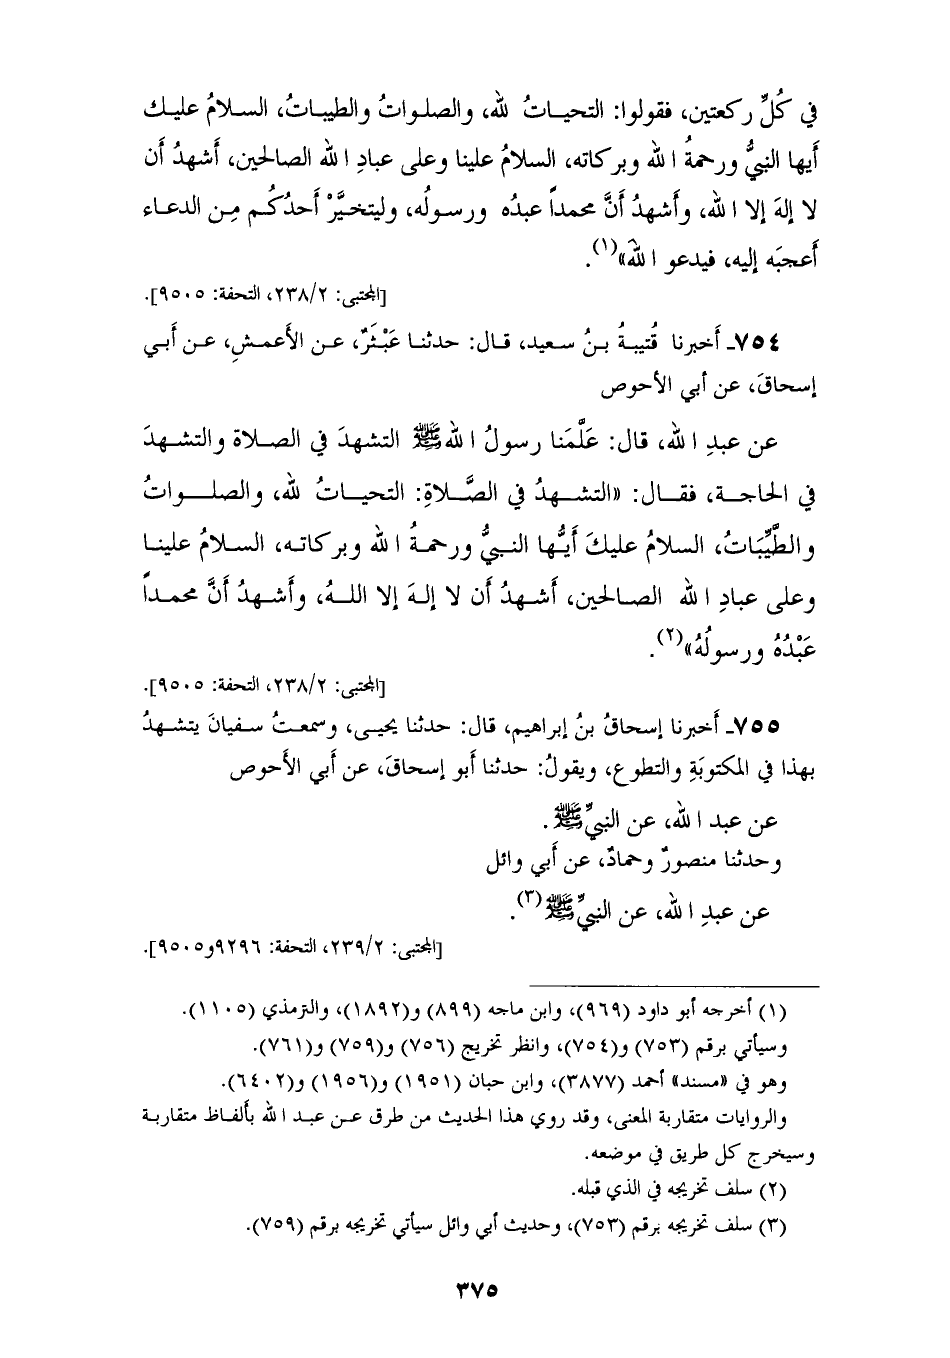 في كُلِّ ركعتين، فقولوا: التحيــاتُ لله، والصلـواتُ والطيبـاتُ، السـلامُ عليـك
أيها النبيُّ ورحمةُ الله وبركاته، السلامُ علينا وعلى عبادِ الله الصالحين، أشهدُ أن
لا إلهَ إلا الله، وأشهدُ أنَّ محمداً عبدُه ورسولُه، وليتخيَّرْ أحدُكُم مِن الدعـاء
أعجبَه إليه، فيدعو اللهَ»(١).
[المجتبى: ٢٣٨/٢، التحفة: ٩٥٠٥].
٧٥٤ـ أخبرنا قُتيبةُ بنُ سعيد، قـال: حدثنـا عَبْثَرٌ، عـن الأعمـشِ، عـن أبـي
إسحاقَ، عن أبي الأحوص
عن عبدِ الله، قال: عَلَّمَنا رسولُ الله ﷺ التشهدَ في الصـلاة والتشـهدَ
في الحاجـة، فقـال: «التشـهدُ في الصَّلاةِ: التحيـاتُ لله، والصلـواتُ
والطَّيِّبَاتُ، السلامُ عليكَ أيُّها النبيُّ ورحمـةُ الله وبركاتـه، السـلامُ علينـا
وعلى عبادِ الله الصـالحين، أشـهدُ أن لا إلـهَ إلا اللـهُ، وأشـهدُ أنَّ محمـداً
عَبْدُهُ ورسولُهُ»(٢).
[المجتبى: ٢٣٨/٢، التحفة: ٩٥٠٥].
٧٥٥ـ أخبرنا إسحاقُ بنُ إبراهيم، قال: حدثنا يحيـى، وسمعـتُ سـفيانَ يتشـهدُ
بهذا في المكتوبَةِ والتطوع، ويقولُ: حدثنا أبو إسحاقَ، عن أبي الأحوص
عن عبد الله، عن النبيِّ ﷺ.
وحدثنا منصورٌ وحمادٌ، عن أبي وائل
عن عبدِ الله، عن النبيِّ ﷺ(٣).
[المجتبى: ٢٣٩/٢، التحفة: ٩٢٩٦و٩٥٠٥].
(١) أخرجه أبو داود (٩٦٩)، وابن ماجه (٨٩٩) و(١٨٩٢)، والترمذي (١١٠٥).
وسيأتي برقم (٧٥٣) و(٧٥٤)، وانظر تخريج (٧٥٦) و(٧٥٩) و(٧٦١).
وهو في «مسند» أحمد (٣٨٧٧)، وابن حبان (١٩٥١) و(١٩٥٦) و(٦٤٠٢).
والروايات متقاربة المعنى، وقد روي هذا الحديث من طرق عـن عبـد الله بألفـاظ متقاربـة
وسيخرج كل طريق في موضعه.
(٢) سلف تخريجه في الذي قبله.
(٣) سلف تخريجه برقم (٧٥٣)، وحديث أبي وائل سيأتي تخريجه برقم (٧٥٩).
٣٧٥